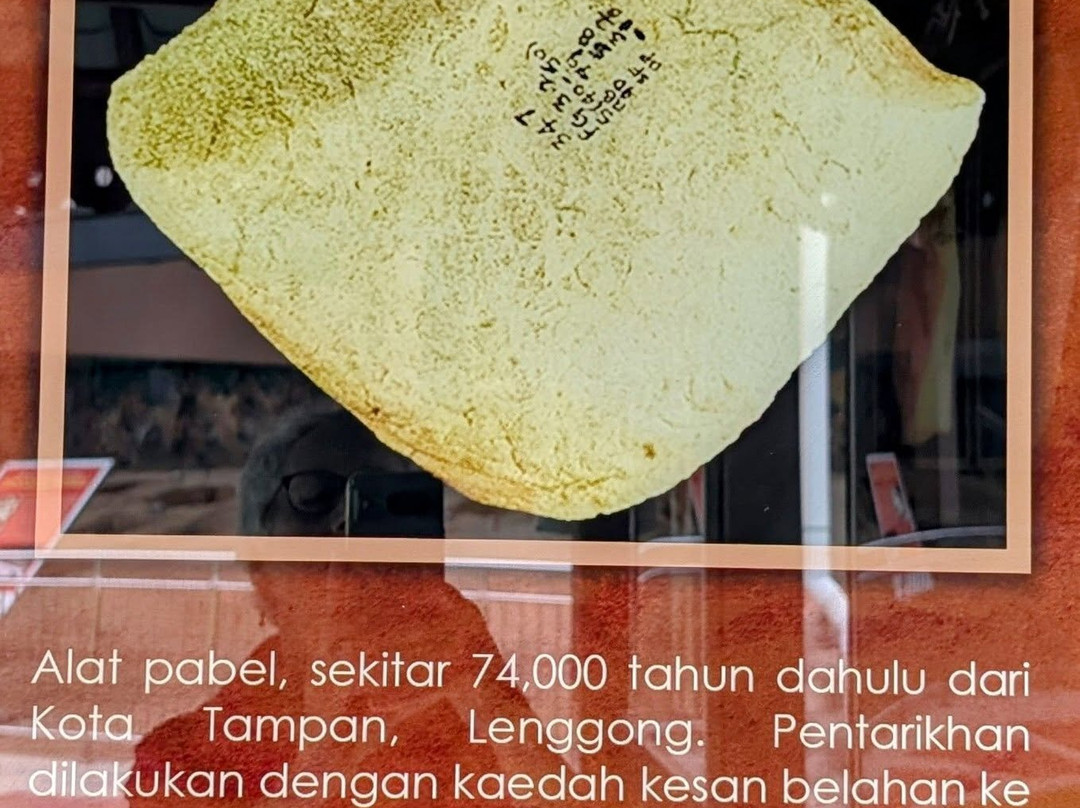 Alat pabel, sekitar 74,000 tahun dahulu dari
Kota Tampan, Lenggong. Pentarikhan
dilakukan dengan kaedah kesan belahan ke